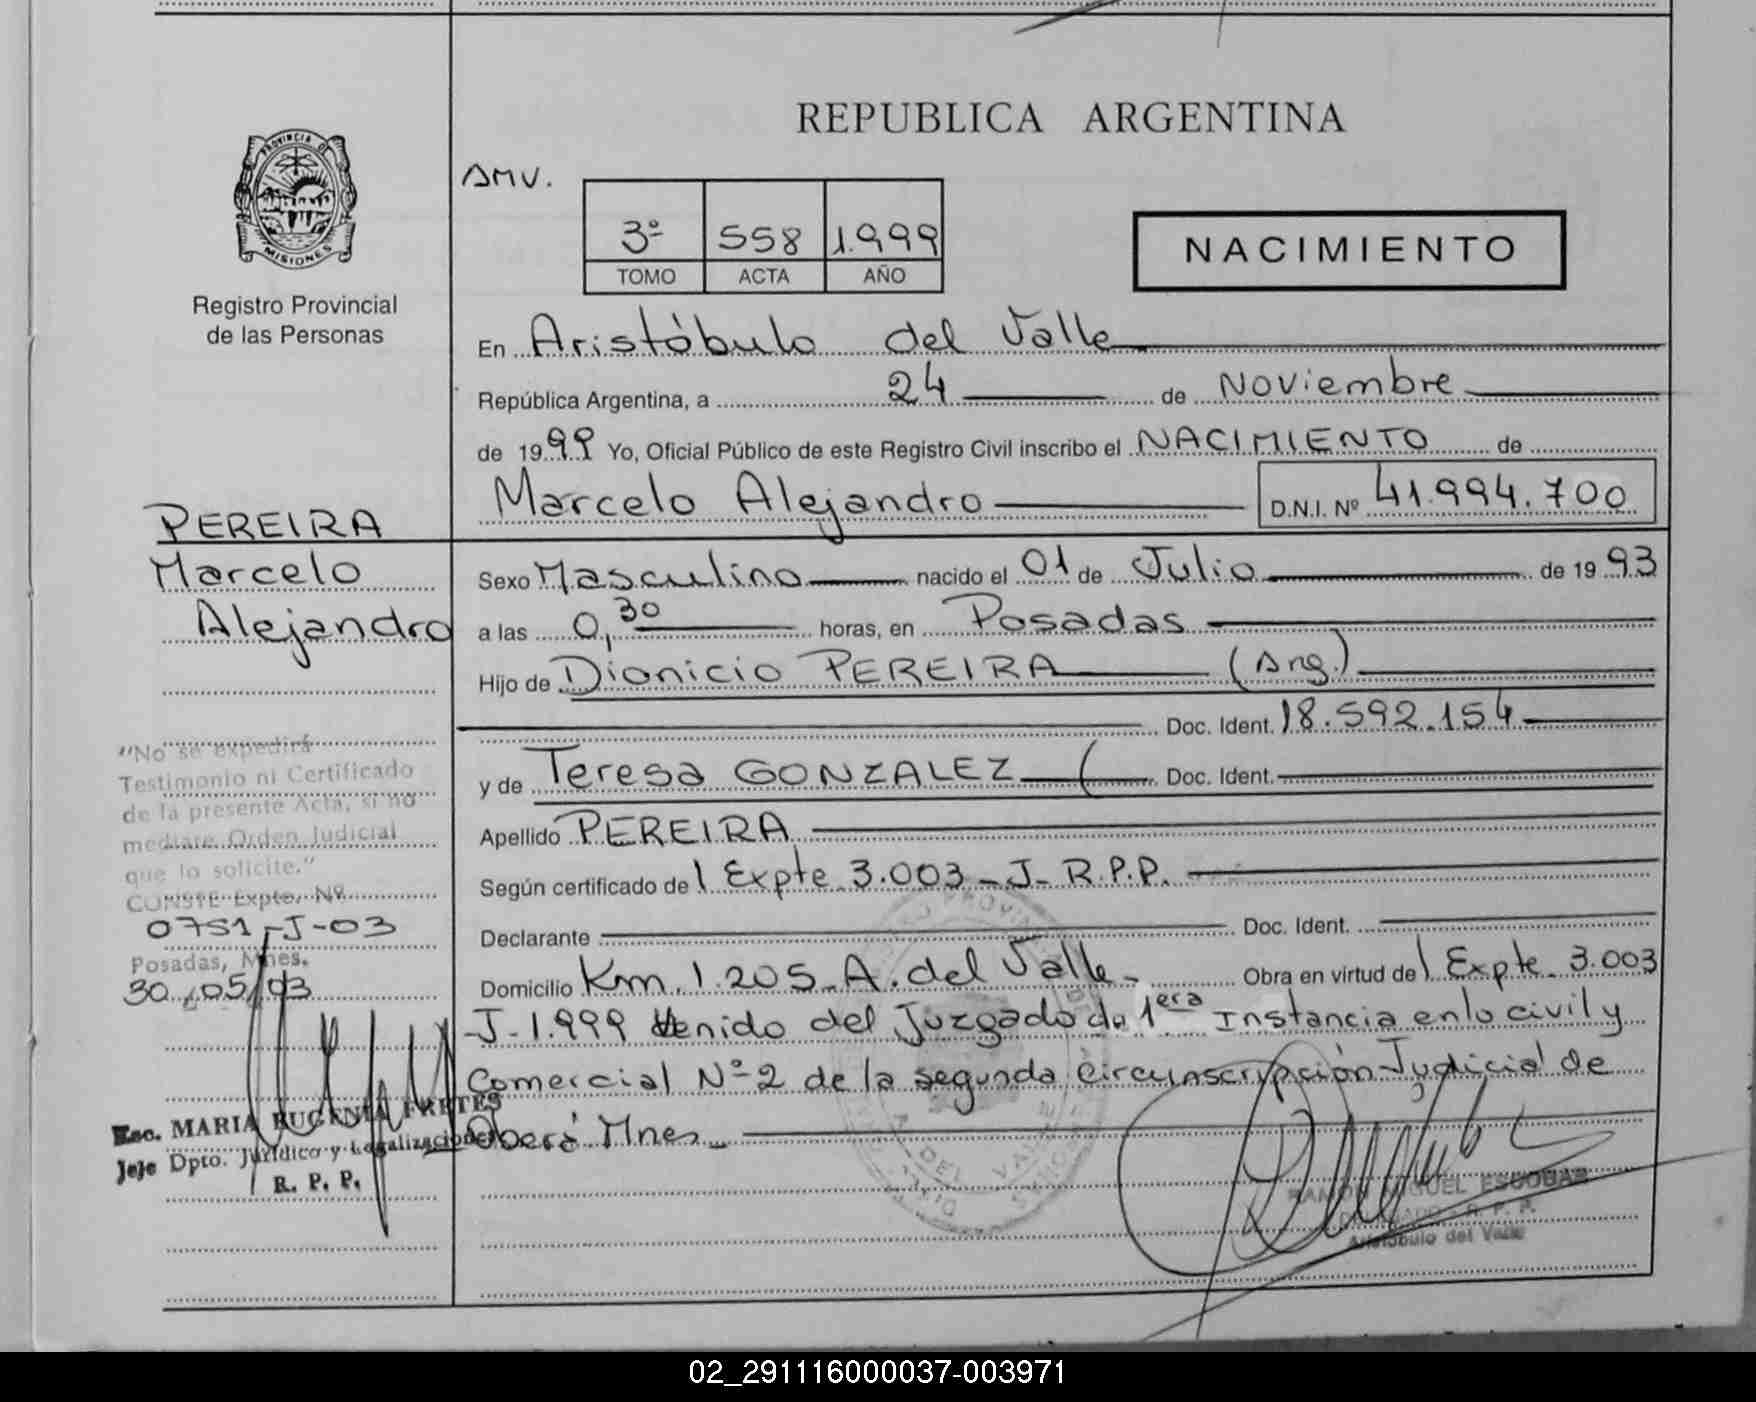 REPUBLICA ARGENTINA
PROVINCIA DE
MISIONES
Registro Provincial
de las Personas
AMV.
3º 558 1.999
TOMO ACTA AÑO
NACIMIENTO
En Aristóbulo del Valle
República Argentina, a 24 de Noviembre
de 1999 Yo, Oficial Público de este Registro Civil inscribo el NACIMIENTO de
Marcelo Alejandro D.N.I. Nº 41.994.700
PEREIRA
Marcelo
Alejandro
Sexo Masculino nacido el 01 de Julio de 1993
a las 0,30 horas, en Posadas
Hijo de Dionicio PEREIRA (Arg.)
Doc. Ident. 18.592.154
y de Teresa GONZALEZ ( Doc. Ident.
Apellido PEREIRA
Según certificado de Expte 3.003-J-R.P.P.
Declarante Doc. Ident.
Domicilio Km. 1.205 A. del Valle- Obra en virtud de Expte 3.003
-J-1.999 Venido del Juzgado de 1era Instancia en lo civil y
Comercial Nº 2 de la segunda Circunscripción Judicial de
Oberá Mnes-
"No se expedirá
Testimonio ni Certificado
de la presente Acta, si no
mediare Orden Judicial
que lo solicite."
CONSTE Expte. Nº
0751-J-03
Posadas, Mnes.
30/05/03
Esc. MARIA EUGENIA FRETES
Jefe Dpto. Jurídico y Legalizaciones
R. P. P.
RAMON MIGUEL ESCOBAR
DELEGADO - R. P. P.
Aristóbulo del Valle
02_291116000037-003971